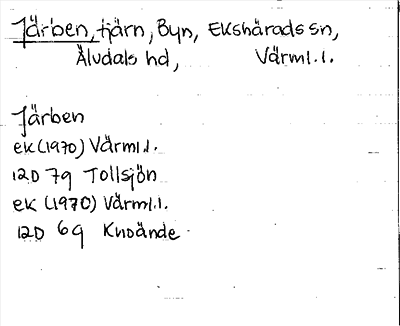 Järben, tjärn, Byn, Ekshärads sn,
Älvdals hd, Värml.l.
Järben
ek (1970) Värml.l.
12D 7g Tollsjön
ek (1970) Värml.l.
12D 6g Knoände